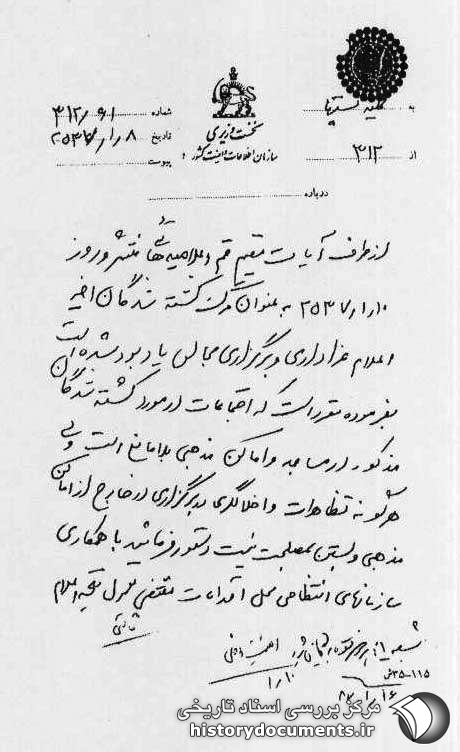 به کلیه بخشها
شماره ۳۱۲/۶۱
نخست وزیری
تاریخ ۲۵۳۷/۱/۸
سازمان اطلاعات و امنیت کشور
پیوست
از ۳۱۲
درباره
از طرف آیات مقیم قم اعلامیه‌هائی منتشر و روز
۲۵۳۷/۱/۱۰ به عنوان کشته شدگان اخیر
اعلام عزاداری و برگزاری مجالس یادبود شده است
بفرموده مقرر است که اجتماعات در مورد کشته شدگان
مذکور در مساجد و اماکن مذهبی بلامانع است ولی
هرگونه تظاهرات و اخلالگری و برگزاری در خارج از اماکن
مذهبی و بستن بمصلحت نیست دستور فرمائید با همکاری
سازمانهای انتظامی محلی اقدامات مقتضی معمول نتیجه اعلام
ثابتی
امنیت داخلی
۱/۱۰
۳۵-۱۱۵ش
مرکز بررسی اسناد تاریخی
historydocuments.ir